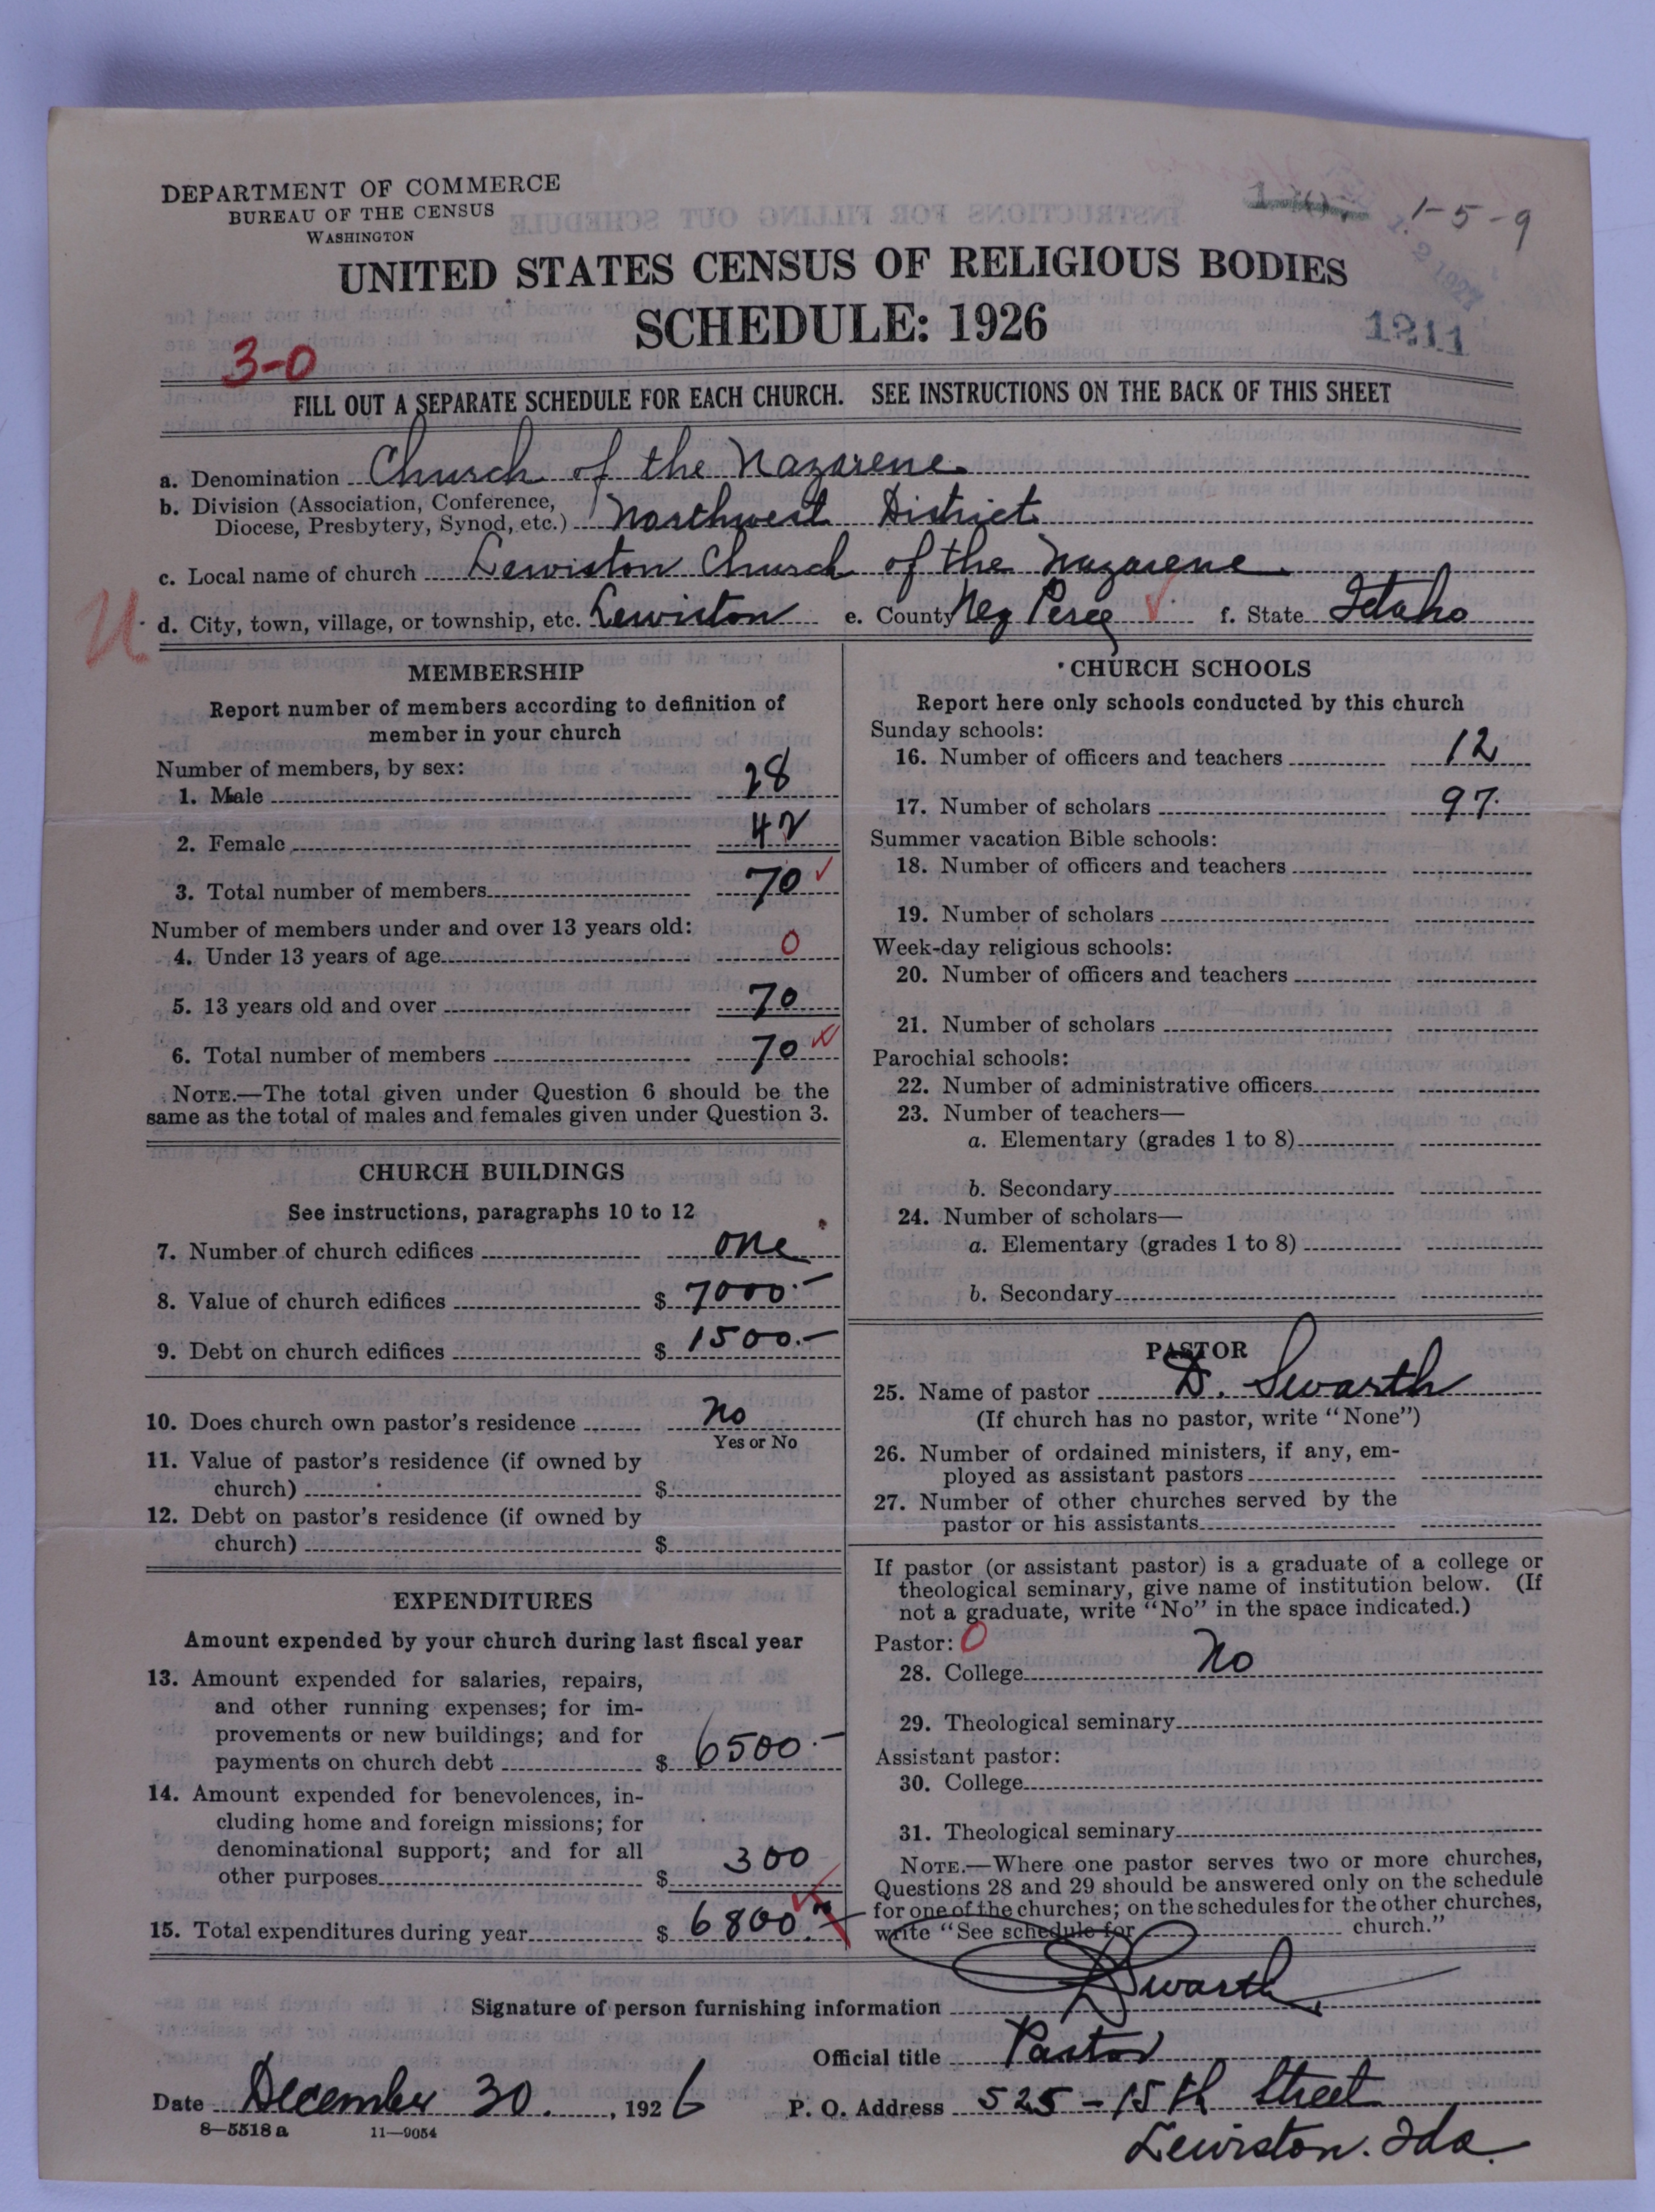 DEPARTMENT OF COMMERCE
BUREAU OF THE CENSUS
WASHINGTON
1-5-9
2 1927
UNITED STATES CENSUS OF RELIGIOUS BODIES
SCHEDULE: 1926
1211
3-0
FILL OUT A SEPARATE SCHEDULE FOR EACH CHURCH. SEE INSTRUCTIONS ON THE BACK OF THIS SHEET
a. Denomination Church of the Nazarene
b. Division (Association, Conference,
Diocese, Presbytery, Synod, etc.) Northwest District
c. Local name of church Lewiston Church of the Nazarene
U d. City, town, village, or township, etc. Lewiston e. County Nez Perce f. State Idaho
MEMBERSHIP
Report number of members according to definition of
member in your church
Number of members, by sex:
1. Male 28
2. Female 42
3. Total number of members 70
Number of members under and over 13 years old:
4. Under 13 years of age 0
5. 13 years old and over 70
6. Total number of members 70
NOTE.—The total given under Question 6 should be the
same as the total of males and females given under Question 3.
CHURCH BUILDINGS
See instructions, paragraphs 10 to 12
7. Number of church edifices one
8. Value of church edifices $ 7000.-
9. Debt on church edifices $ 1500.-
10. Does church own pastor's residence No
Yes or No
11. Value of pastor's residence (if owned by
church) $
12. Debt on pastor's residence (if owned by
church) $
EXPENDITURES
Amount expended by your church during last fiscal year
13. Amount expended for salaries, repairs,
and other running expenses; for im-
provements or new buildings; and for
payments on church debt $ 6500.-
14. Amount expended for benevolences, in-
cluding home and foreign missions; for
denominational support; and for all
other purposes $ 300
15. Total expenditures during year $ 6800.-
CHURCH SCHOOLS
Report here only schools conducted by this church
Sunday schools:
16. Number of officers and teachers 12
17. Number of scholars 97.
Summer vacation Bible schools:
18. Number of officers and teachers
19. Number of scholars
Week-day religious schools:
20. Number of officers and teachers
21. Number of scholars
Parochial schools:
22. Number of administrative officers
23. Number of teachers—
a. Elementary (grades 1 to 8)
b. Secondary
24. Number of scholars—
a. Elementary (grades 1 to 8)
b. Secondary
PASTOR
25. Name of pastor D. Swarth
(If church has no pastor, write "None")
26. Number of ordained ministers, if any, em-
ployed as assistant pastors
27. Number of other churches served by the
pastor or his assistants
If pastor (or assistant pastor) is a graduate of a college or
theological seminary, give name of institution below. (If
not a graduate, write "No" in the space indicated.)
Pastor: 0
28. College No
29. Theological seminary
Assistant pastor:
30. College
31. Theological seminary
NOTE.—Where one pastor serves two or more churches,
Questions 28 and 29 should be answered only on the schedule
for one of the churches; on the schedules for the other churches,
write "See schedule for church."
Signature of person furnishing information D Swarth
Official title Pastor
Date December 30. , 1926 P. O. Address 525 - 15th Street
8—5518 a 11—9054
Lewiston. Ida.